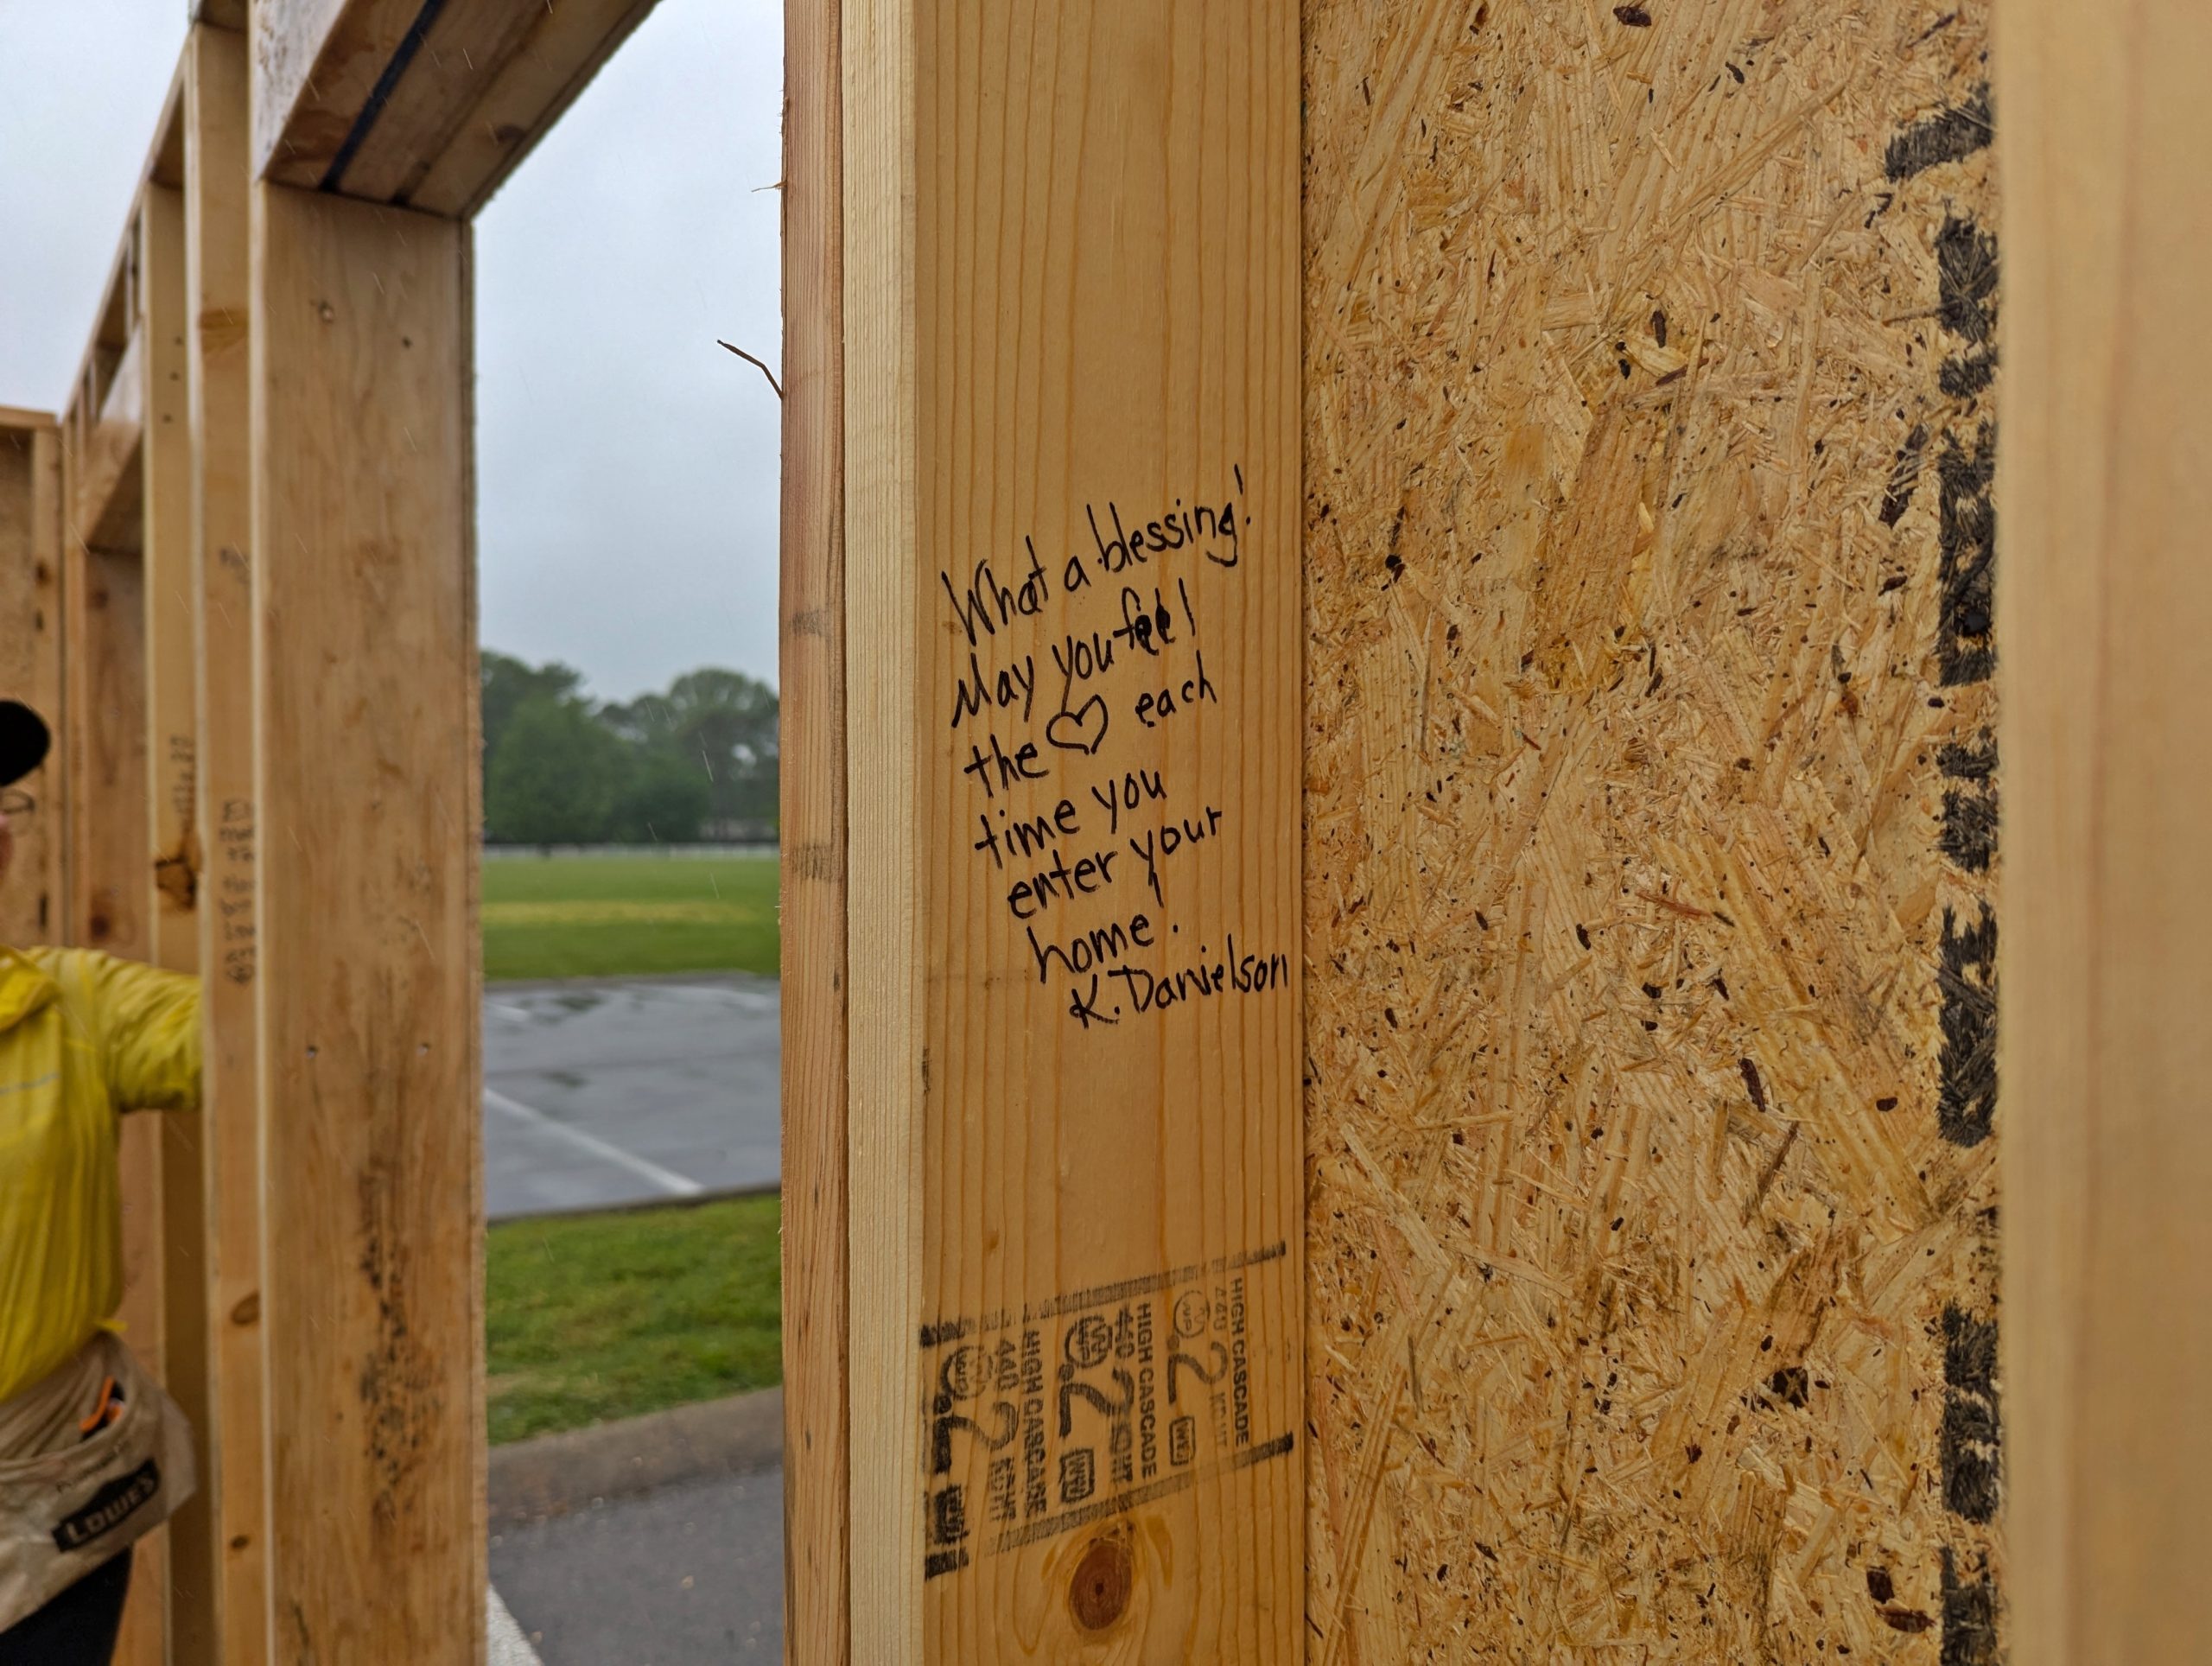 What a blessing!
May you feel
the ♡ each
time you
enter your
home!
K. Danielson
HIGH CASCADE
440
2
KDHT
HIGH CASCADE
440
2
KDHT
HIGH CASCADE
440
2
KDHT
LOWE'S